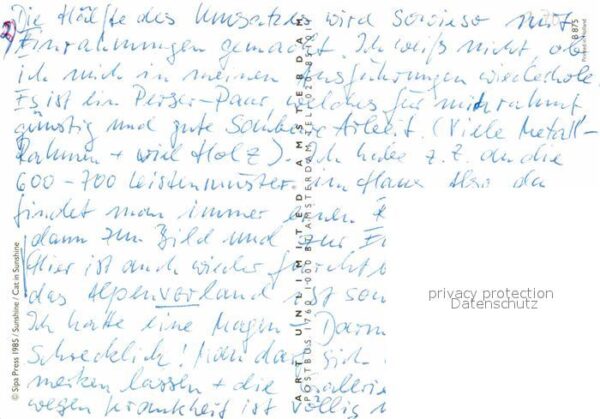 2) Die Hälfte des Umsatzes wird sowieso mit
Einrahmungen gemacht. Ich weiß nicht, ob
ich mich in meinen Ausführungen wiederhole.
Es ist ein Perser-Paar, welches für mich rahmt
günstig und gute saubere Arbeit. (Viele Metall-
Rahmen + viel Holz). Ich habe z.Z. an die
600-700 Leistenmuster im Haus. Also da
findet man immer einen
dann zum Bild und zur
Hier ist auch wieder
das Alpenvorland ist
Ich hatte eine Magen-Darm
Schrecklich! Man darf sich
merken lassen + die Galerie
wegen Krankheit ist völlig
B 875
Printed in Holland
ART UNLIMITED AMSTERDAM
© Sipa Press 1985 / Sunshine / Cat in Sunshine
privacy protection
Datenschutz